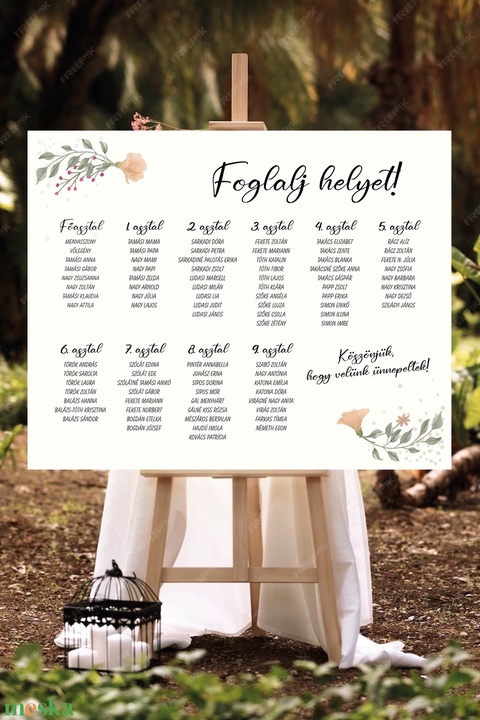 Foglalj helyet!
Főasztal
MENYASSZONY
VŐLEGÉNY
TAMÁSI ANNA
TAMÁSI GÁBOR
NAGY ZSUZSANNA
NAGY ZOLTÁN
TAMÁSI KLAUDIA
NAGY ATTILA
1. asztal
TAMÁSI MAMA
TAMÁSI PAPA
NAGY MAMI
NAGY PAPI
TAMÁSI ZELDA
NAGY ARNOLD
NAGY JÚLIA
NAGY LAJOS
2. asztal
SARKADI DÓRA
SARKADI PETRA
SARKADINÉ PALOTÁS ERIKA
SARKADI ZSOLT
LUDASI MARCELL
LUDASI MILÁN
LUDASI LIA
LUDASI JUDIT
LUDASI JÁNOS
3. asztal
FEKETE ZOLTÁN
FEKETE MARIANN
TÓTH KATALIN
TÓTH TIBOR
TÓTH LAJOS
TÓTH KLÁRA
SZŐKE ANGÉLA
SZŐKE LUJZA
SZŐKE CSILLA
SZŐKE ZÉTÉNY
4. asztal
TAKÁCS ELIZABET
TAKÁCS ZENTE
TAKÁCS BLANKA
TAKÁCSNÉ SZŐKE ANNA
TAKÁCS GÁSPÁR
PAPP ZSOLT
PAPP ERIKA
SIMON ENIKŐ
SIMON ILONA
SIMON IMRE
5. asztal
RÁCZ ALÍZ
RÁCZ ZOLTÁN
FEKETE N. JÚLIA
NAGY ZSÓFIA
NAGY BARBARA
NAGY KRISZTINA
NAGY DEZSŐ
SZILÁGYI JÁNOS
6. asztal
TÖRÖK ANDRÁS
TÖRÖK SAROLTA
TÖRÖK LAURA
TÖRÖK ZOLTÁN
BALÁZS HANNA
BALÁZS-TÓTH KRISZTINA
BALÁZS SÁNDOR
7. asztal
SZOLÁT EDINA
SZOLÁT EDE
SZOLÁTNÉ TAMÁSI ANIKÓ
SZOLÁT GÁBOR
FEKETE MARIANN
FEKETE NORBERT
BOGDÁN ETELKA
BOGDÁN JÓZSEF
8. asztal
PINTÉR ANNABELLA
JUHÁSZ ERNA
SIPOS DORINA
SIPOS MÓR
GÁL MENYHÁRT
GÁLNÉ KISS RÓZSA
MÉSZÁROS BERTALAN
HAJDÚ IMOLA
KOVÁCS PATRÍCIA
9. asztal
SZABÓ ZOLTÁN
NAGY ANTÓNIA
KATONA EMÍLIA
KATONA DÓRA
VIRÁGNÉ NAGY ANITA
VIRÁG ZOLTÁN
FARKAS TÍMEA
NÉMETH EGON
Köszönjük,
hogy velünk ünnepeltek!
meska